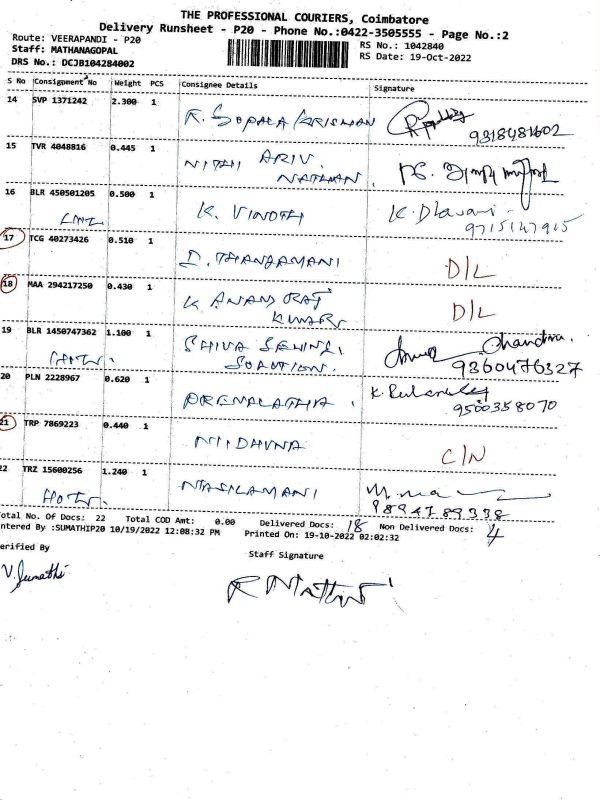 THE PROFESSIONAL COURIERS, Coimbatore
Delivery Runsheet - P20 - Phone No.:0422-3505555 - Page No.:2
Route: VEERAPANDI - P20
Staff: MATHANAGOPAL
DRS No.: DCJB104284002
RS No.: 1042840
RS Date: 19-Oct-2022
S No Consignment No Weight PCS Consignee Details Signature
14 SVP 1371242 2.300 1
9318481602
15 TVR 4048816 0.445 1 NITHI ARIV.
NATHAN
16 BLR 450501205 0.500 1 K. VINOTH
17 TCG 40273426 0.510 1 THANGAMANI D/L
18 MAA 294217250 0.430 1 K ANAND RAJ D/L
KUMAR
19 BLR 1450747362 1.100 1 Chandra.
SOLUTION. 9360476327
20 PLN 2228967 0.620 1 PREMALATHA
9500358070
21 TRP 7869223 0.440 1 C/N
22 TRZ 15600256 1.240 1 MASILAMANI
9894789338
otal No. Of Docs: 22 Total COD Amt: 0.00 Delivered Docs: 18 Non Delivered Docs: 4
ntered By :SUMATHIP20 10/19/2022 12:08:32 PM Printed On: 19-10-2022 02:02:32
erified By Staff Signature
V. Sumathi